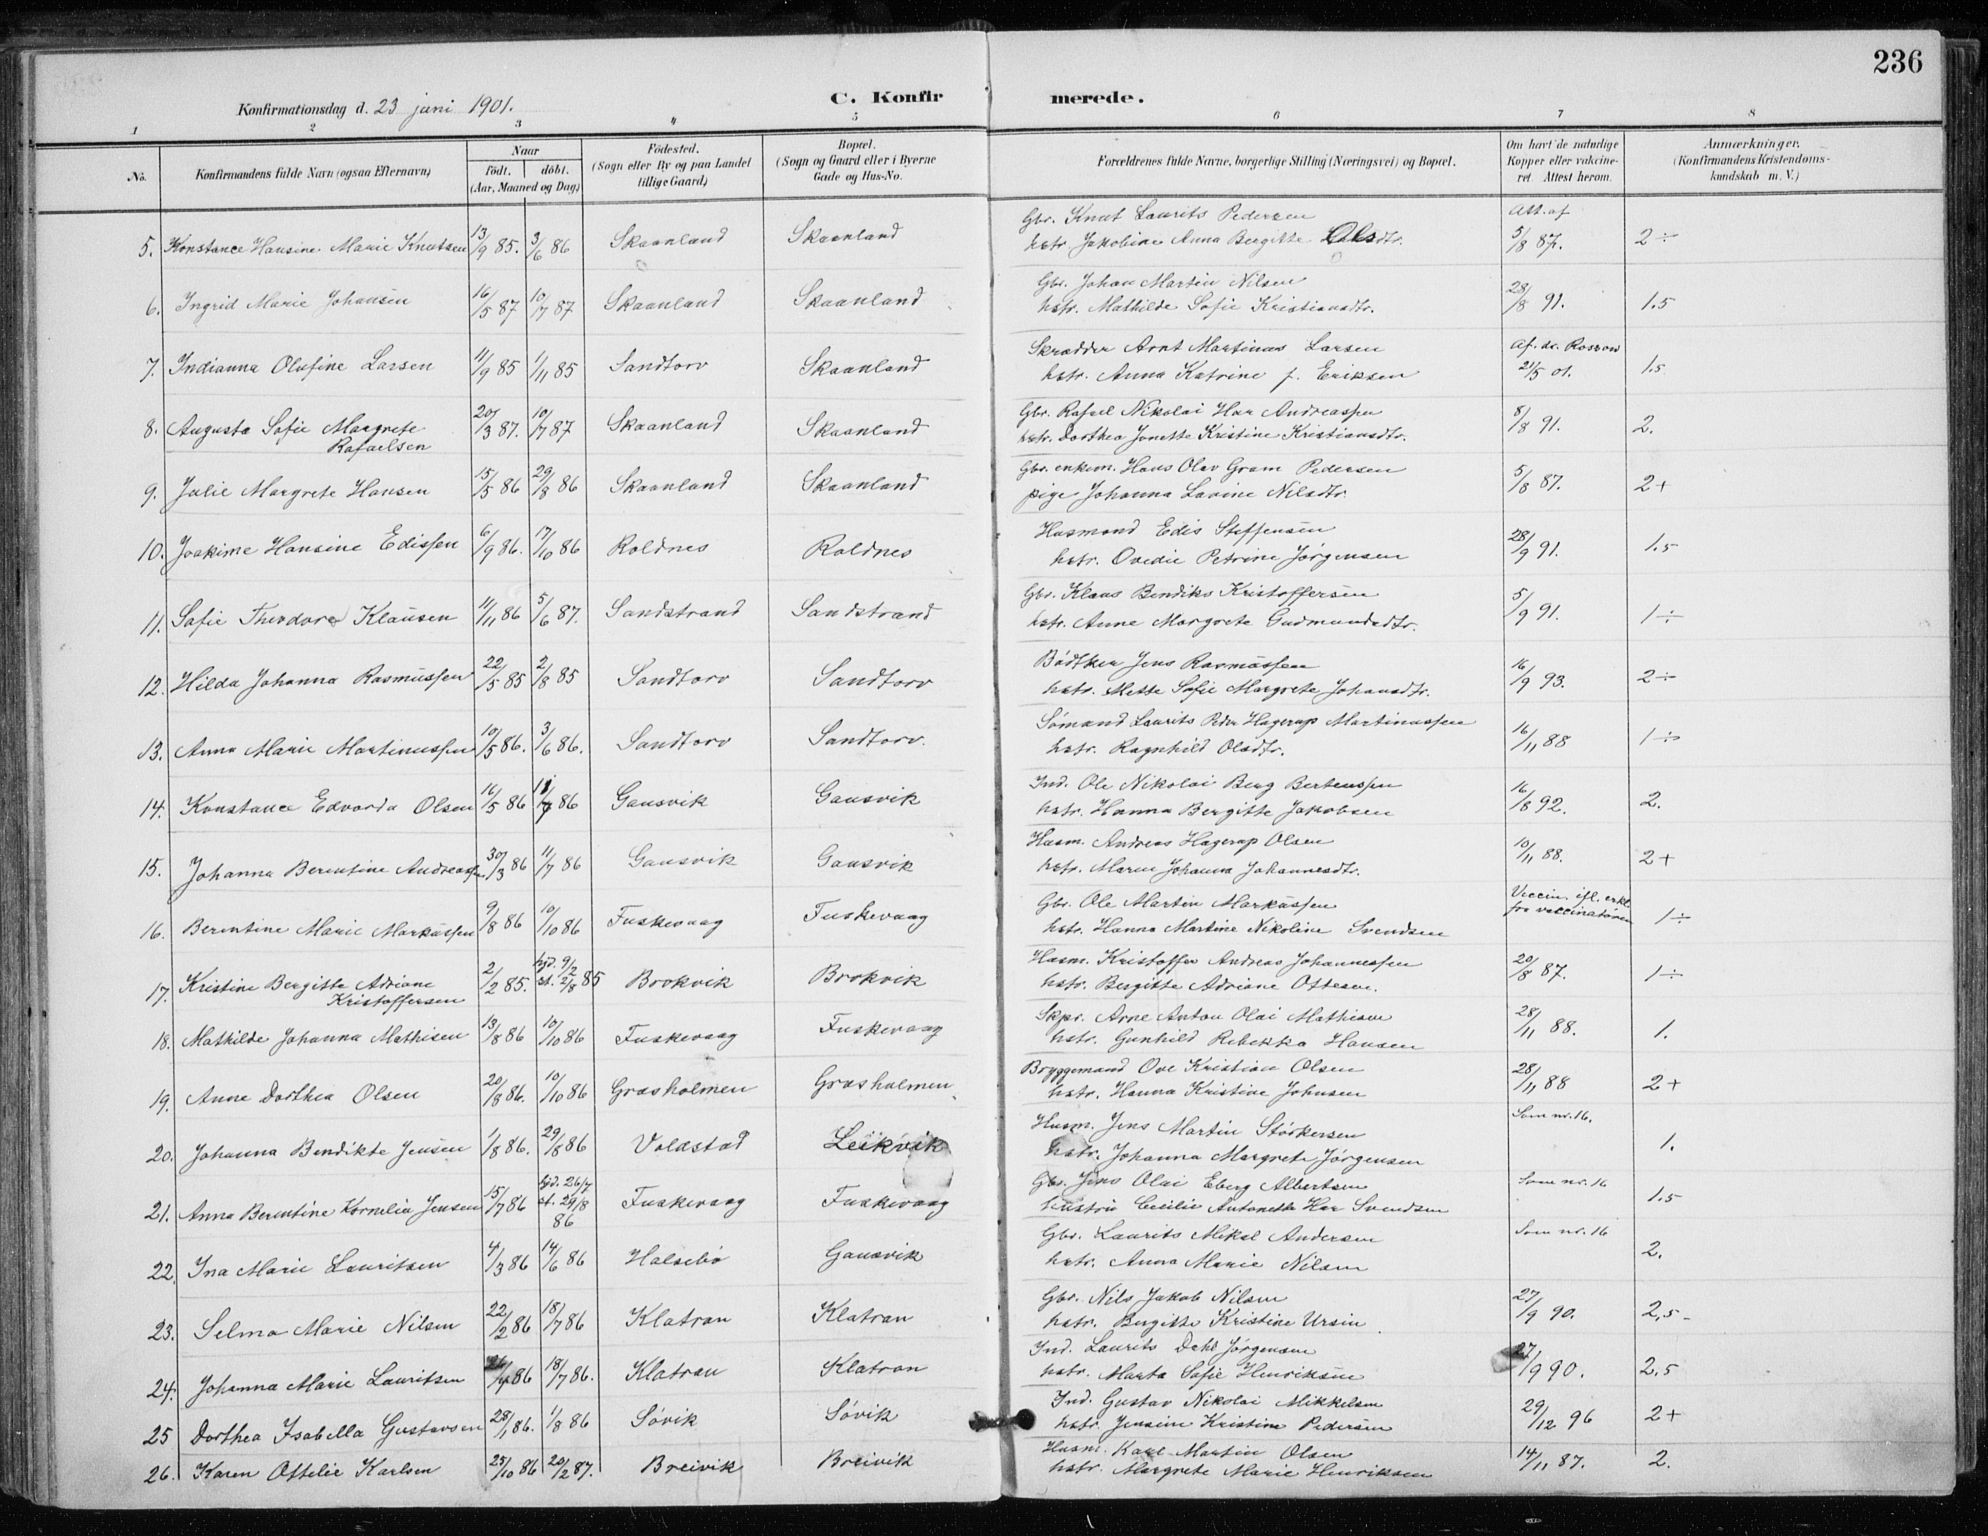 236
Konfirmationsdag d. 23 juni 1901.
C. Konfir merede.
1 2 3 4 5 6 7 8
No.
Konfirmandens fulde Navn (ogsaa Efternavn)
Naar
født. døbt.
(Aar, Maaned og Dag)
Fødested.
(Sogn eller By og paa Landet
tillige Gaard)
Bopæl.
(Sogn og Gaard eller i Byerne
Gade og Hus-No.
Forældrenes fulde Navne, borgerlige Stilling (Næringsvei) og Bopæl.
Om havt de naturlige
Kopper eller vakcine-
ret. Attest herom.
Anmærkninger.
(Konfirmandens Kristendoms-
kundskab m. V.)
Gbr. Knut Laurits Pedersen Att. af
5. Konstance Hansine Marie Knutsen 13/9 85. 3/6 86 Skaanland Skaanland hstr. Jakobine Anna Bergitte Olsdtr. 5/8 87. 2÷
Gbr. Johan Martin Nilsen
6. Ingrid Marie Johansen 16/5 87 10/7 87 Skaanland Skaanland hstr. Mathilde Sofie Kristiansdtr. 28/8 91. 1.5
Skrædder Arnt Martinus Larsen Af. dr. Rossow
7. Indianna Olufine Larsen 11/9 85 1/11 85 Sandtorv Skaanland hstr. Anna Katrine f. Eriksen 21/5 01. 1.5
Gbr. Rafael Nikolai Har Andreassen
8. Augusta Sofie Margrete 20/3 87. 10/7 87 Skaanland Skaanland hstr. Dorthea Jonette Kristine Kristiansdtr. 8/8 91. 2.
Rafaelsen
Gbr. enkem. Hans Olav Gram Pedersen
9. Julie Margrete Hansen 15/5 86 29/8 86 Skaanland Skaanland pige Johanna Lavine Nilsdtr. 5/8 87. 2+
Husmand Edis Steffensen
10. Joakime Hansine Edissen 6/9 86. 17/10 86 Roldnes Roldnes hstr. Ovedie Petrine Jørgensen 28/9 91. 1.5
Gbr. Klaus Bendiks Kristoffersen
11. Sofie Theodore Klausen 11/11 86 5/6 87. Sandstrand Sandstrand hstr. Anne Margrete Gudmundsdtr. 5/9 91. 1÷
Bødtker Jens Rasmussen
12. Hilda Johanna Rasmussen 22/5 85 2/8 85 Sandtorv Sandtorv hstr. Mette Sofie Margrete Johansdtr. 16/9 93. 2÷
Sømand Laurits Peder Hagerup Martinussen
13. Anna Marie Martinussen 10/5 86. 3/6 86. Sandtorv Sandtorv. hstr. Ragnhild Olsdtr. 16/11 88 1÷
Ind. Ole Nikolai Berg Bertenssen
14. Konstance Edvarda Olsen 16/5 86 86 Gausvik Gausvik hstr. Hanna Bergitte Jakobsen 16/8 92. 2.
Husm. Andreas Hagerup Olsen
15. Johanna Berentine Andreassen 30/3 86 11/7 86 Gausvik Gausvik hstr. Maren Johanna Johannesdtr. 10/11 88. 2+
Gbr. Ole Martin Markussen Vaccin. ifl. erkl.
16. Berentine Marie Markussen 9/8 86 10/10 86 Fuskevaag Fuskevaag hstr. Hanna Martine Nikoline Svendsen fra vaccinatøren 1÷
Husm. Kristoffer Andreas Johannessen
17. Kristine Bergitte Adriane 2/2 85. hjd. 9/2 st. 2/8 85 Brokvik Brokvik hstr. Bergitte Adriane Ottesen. 20/8 87. 1÷
Kristoffersen
Skpr. Arne Anton Olai Mathisen
18. Mathilde Johanna Mathisen 13/8 86 10/10 86 Fuskevaag Fuskevaag hstr. Gunhild Rebekka Hansen 28/11 88. 1.
Bryggemand Ove Kristian Olsen
19. Anne Dorthea Olsen 20/8 86. 10/10 86 Græsholmen Græsholmen hstr. Hanna Kristine Johnsen 28/11 88 2+
Husm. Jens Martin Størkersen Som nr. 16.
20. Johanna Bendikte Jensen 1/8 86. 29/8 86 Voldstad Leikvik hstr. Johanna Margrete Jørgensen 1.
Gbr. Jens Olai Eberg Albertsen Som nr. 16
21. Anna Berentine Kornelia Jensen 15/7 86 hjd. 26/7 st. 29/8 86 Fuskevaag Fuskevaag hustru Cecilie Antonette Har Svendsen 1.5
Gbr. Laurits Mikal Andersen Som nr. 16
22. Ina Marie Lauritsen 4/3 86 14/6 86 Halsebø Gausvik hstr. Anna Marie Nilsen 2.
Gbr. Nils Jakob Nilsen
23. Selma Marie Nilsen 22/2 86 18/7 86 Klatran Klatran hstr. Bergitte Kristine Ursin 27/9 90. 2,5-
Ind. Laurits Dahl Jørgensen
24. Johanna Marie Lauritsen 86 18/7 86. Klatran Klatran hstr. Marta Sofie Henriksen 27/9 90. 2,5
Ind. Gustav Nikolai Mikkelsen
25 Dorthea Isabella Gustavsen 28/1 86. 1/8 86 Søvik Søvik hstr. Jensine Kristine Pedersen 29/12 96 2+
Husm. Karl Martin Olsen
26. Karen Ottelie Karlsen 25/10 86 20/2 87. Breivik Breivik hstr. Margrete Marie Henriksen 14/11 87. 2.